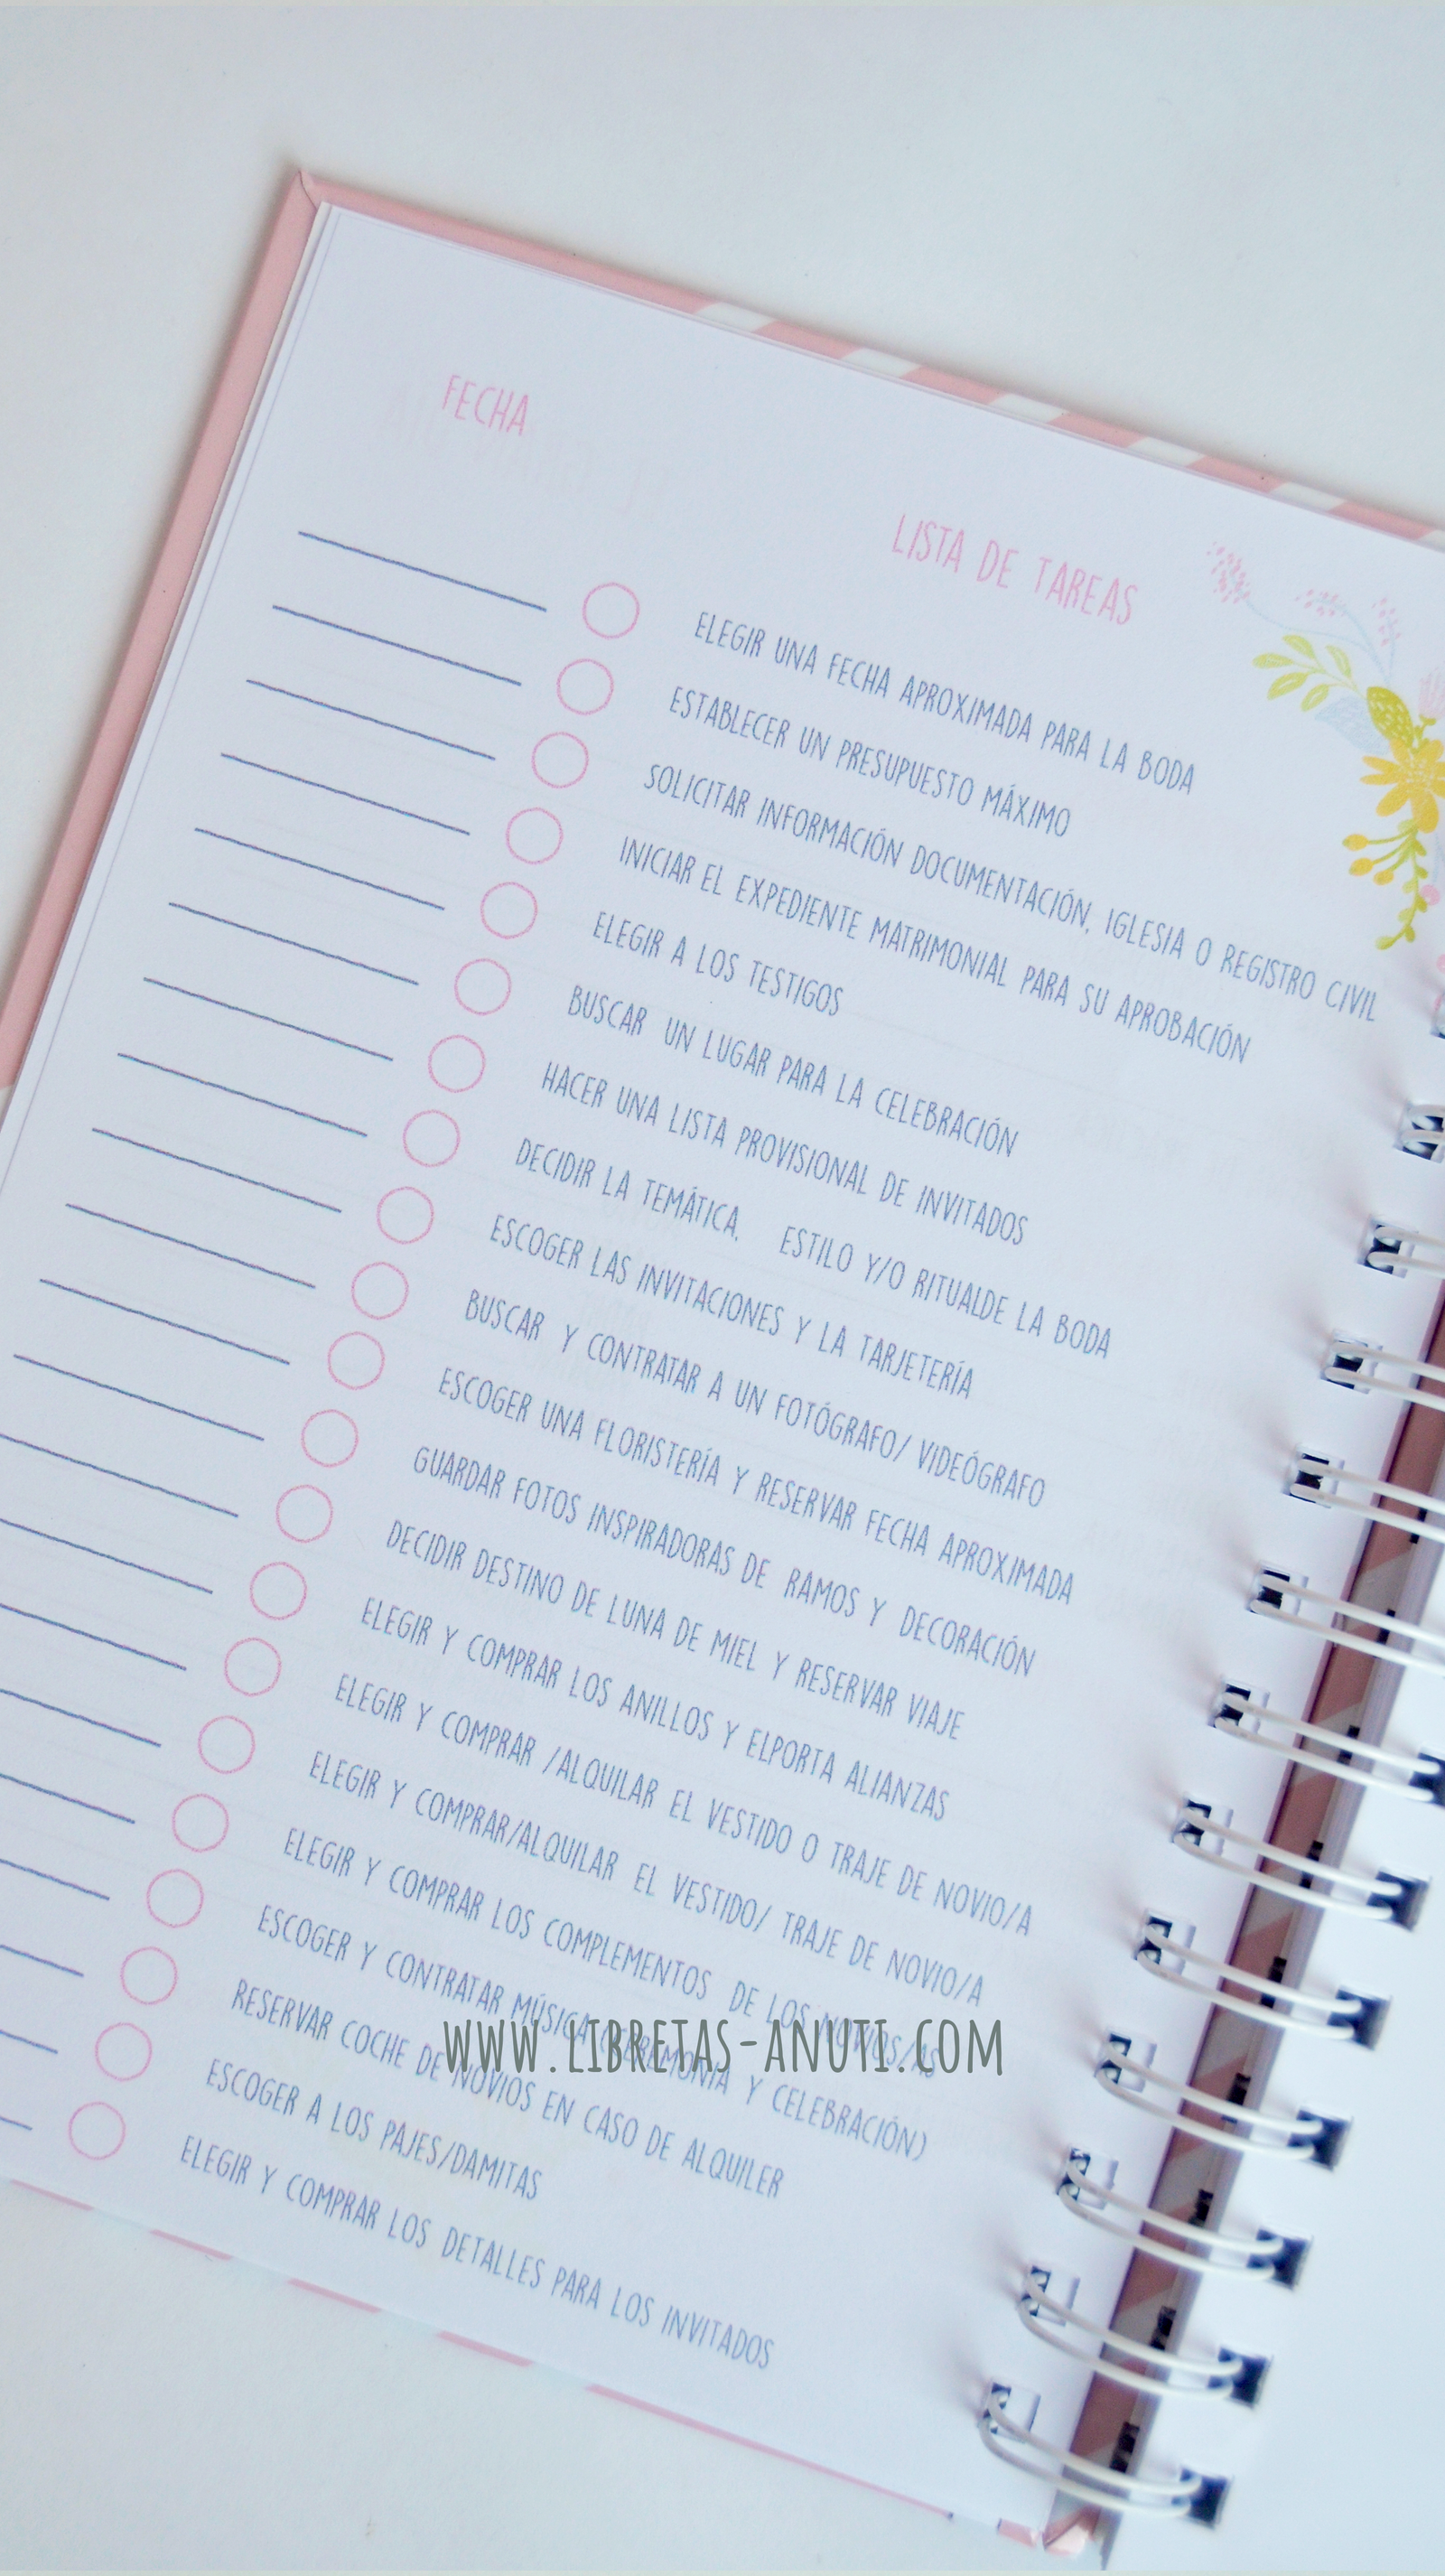 FECHA
LISTA DE TAREAS
ELEGIR UNA FECHA APROXIMADA PARA LA BODA
ESTABLECER UN PRESUPUESTO MÁXIMO
SOLICITAR INFORMACIÓN DOCUMENTACIÓN, IGLESIA O REGISTRO CIVIL
INICIAR EL EXPEDIENTE MATRIMONIAL PARA SU APROBACIÓN
ELEGIR A LOS TESTIGOS
BUSCAR UN LUGAR PARA LA CELEBRACIÓN
HACER UNA LISTA PROVISIONAL DE INVITADOS
DECIDIR LA TEMÁTICA, ESTILO Y/O RITUALDE LA BODA
ESCOGER LAS INVITACIONES Y LA TARJETERÍA
BUSCAR Y CONTRATAR A UN FOTÓGRAFO/ VIDEÓGRAFO
ESCOGER UNA FLORISTERÍA Y RESERVAR FECHA APROXIMADA
GUARDAR FOTOS INSPIRADORAS DE RAMOS Y DECORACIÓN
DECIDIR DESTINO DE LUNA DE MIEL Y RESERVAR VIAJE
ELEGIR Y COMPRAR LOS ANILLOS Y ELPORTA ALIANZAS
ELEGIR Y COMPRAR /ALQUILAR EL VESTIDO O TRAJE DE NOVIO/A
ELEGIR Y COMPRAR/ALQUILAR EL VESTIDO/ TRAJE DE NOVIO/A
ELEGIR Y COMPRAR LOS COMPLEMENTOS DE LOS NOVIOS/AS
ESCOGER Y CONTRATAR MÚSICA (CEREMONIA Y CELEBRACIÓN)
RESERVAR COCHE DE NOVIOS EN CASO DE ALQUILER
ESCOGER A LOS PAJES/DAMITAS
ELEGIR Y COMPRAR LOS DETALLES PARA LOS INVITADOS
WWW.LIBRETAS-ANUTI.COM